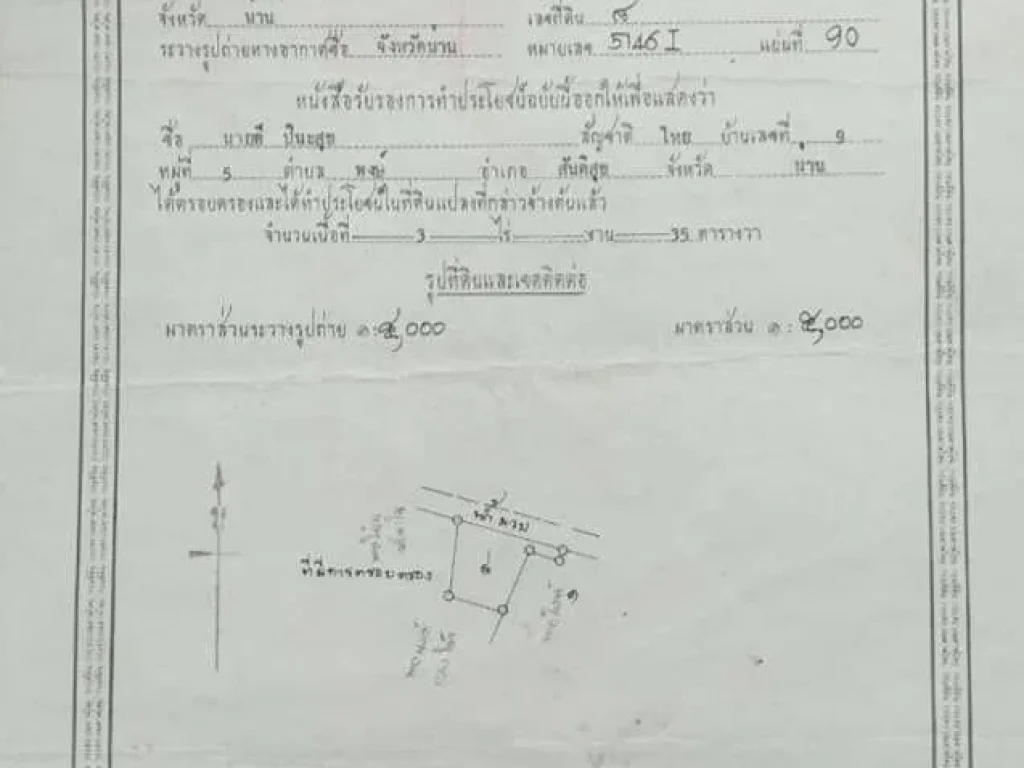 จังหวัด น่าน เลขที่ดิน ๘
ระวางรูปถ่ายทางอากาศชื่อ จังหวัดน่าน หมายเลข 5146 I แผ่นที่ 90
หนังสือรับรองการทำประโยชน์ฉบับนี้ออกให้เพื่อแสดงว่า
ชื่อ นายตี ปินะสุข สัญชาติ ไทย บ้านเลขที่ 9
หมู่ที่ 5 ตำบล พงษ์ อำเภอ สันติสุข จังหวัด น่าน
ได้ครอบครองและได้ทำประโยชน์ในที่ดินแปลงที่กล่าวข้างต้นแล้ว
จำนวนเนื้อที่ 3 ไร่ งาน 35 ตารางวา
รูปที่ดินและเขตติดต่อ
มาตราส่วนระวางรูปถ่าย ๑:๕,000 มาตราส่วน ๑ : ๕,000
ที่มีการครอบครอง